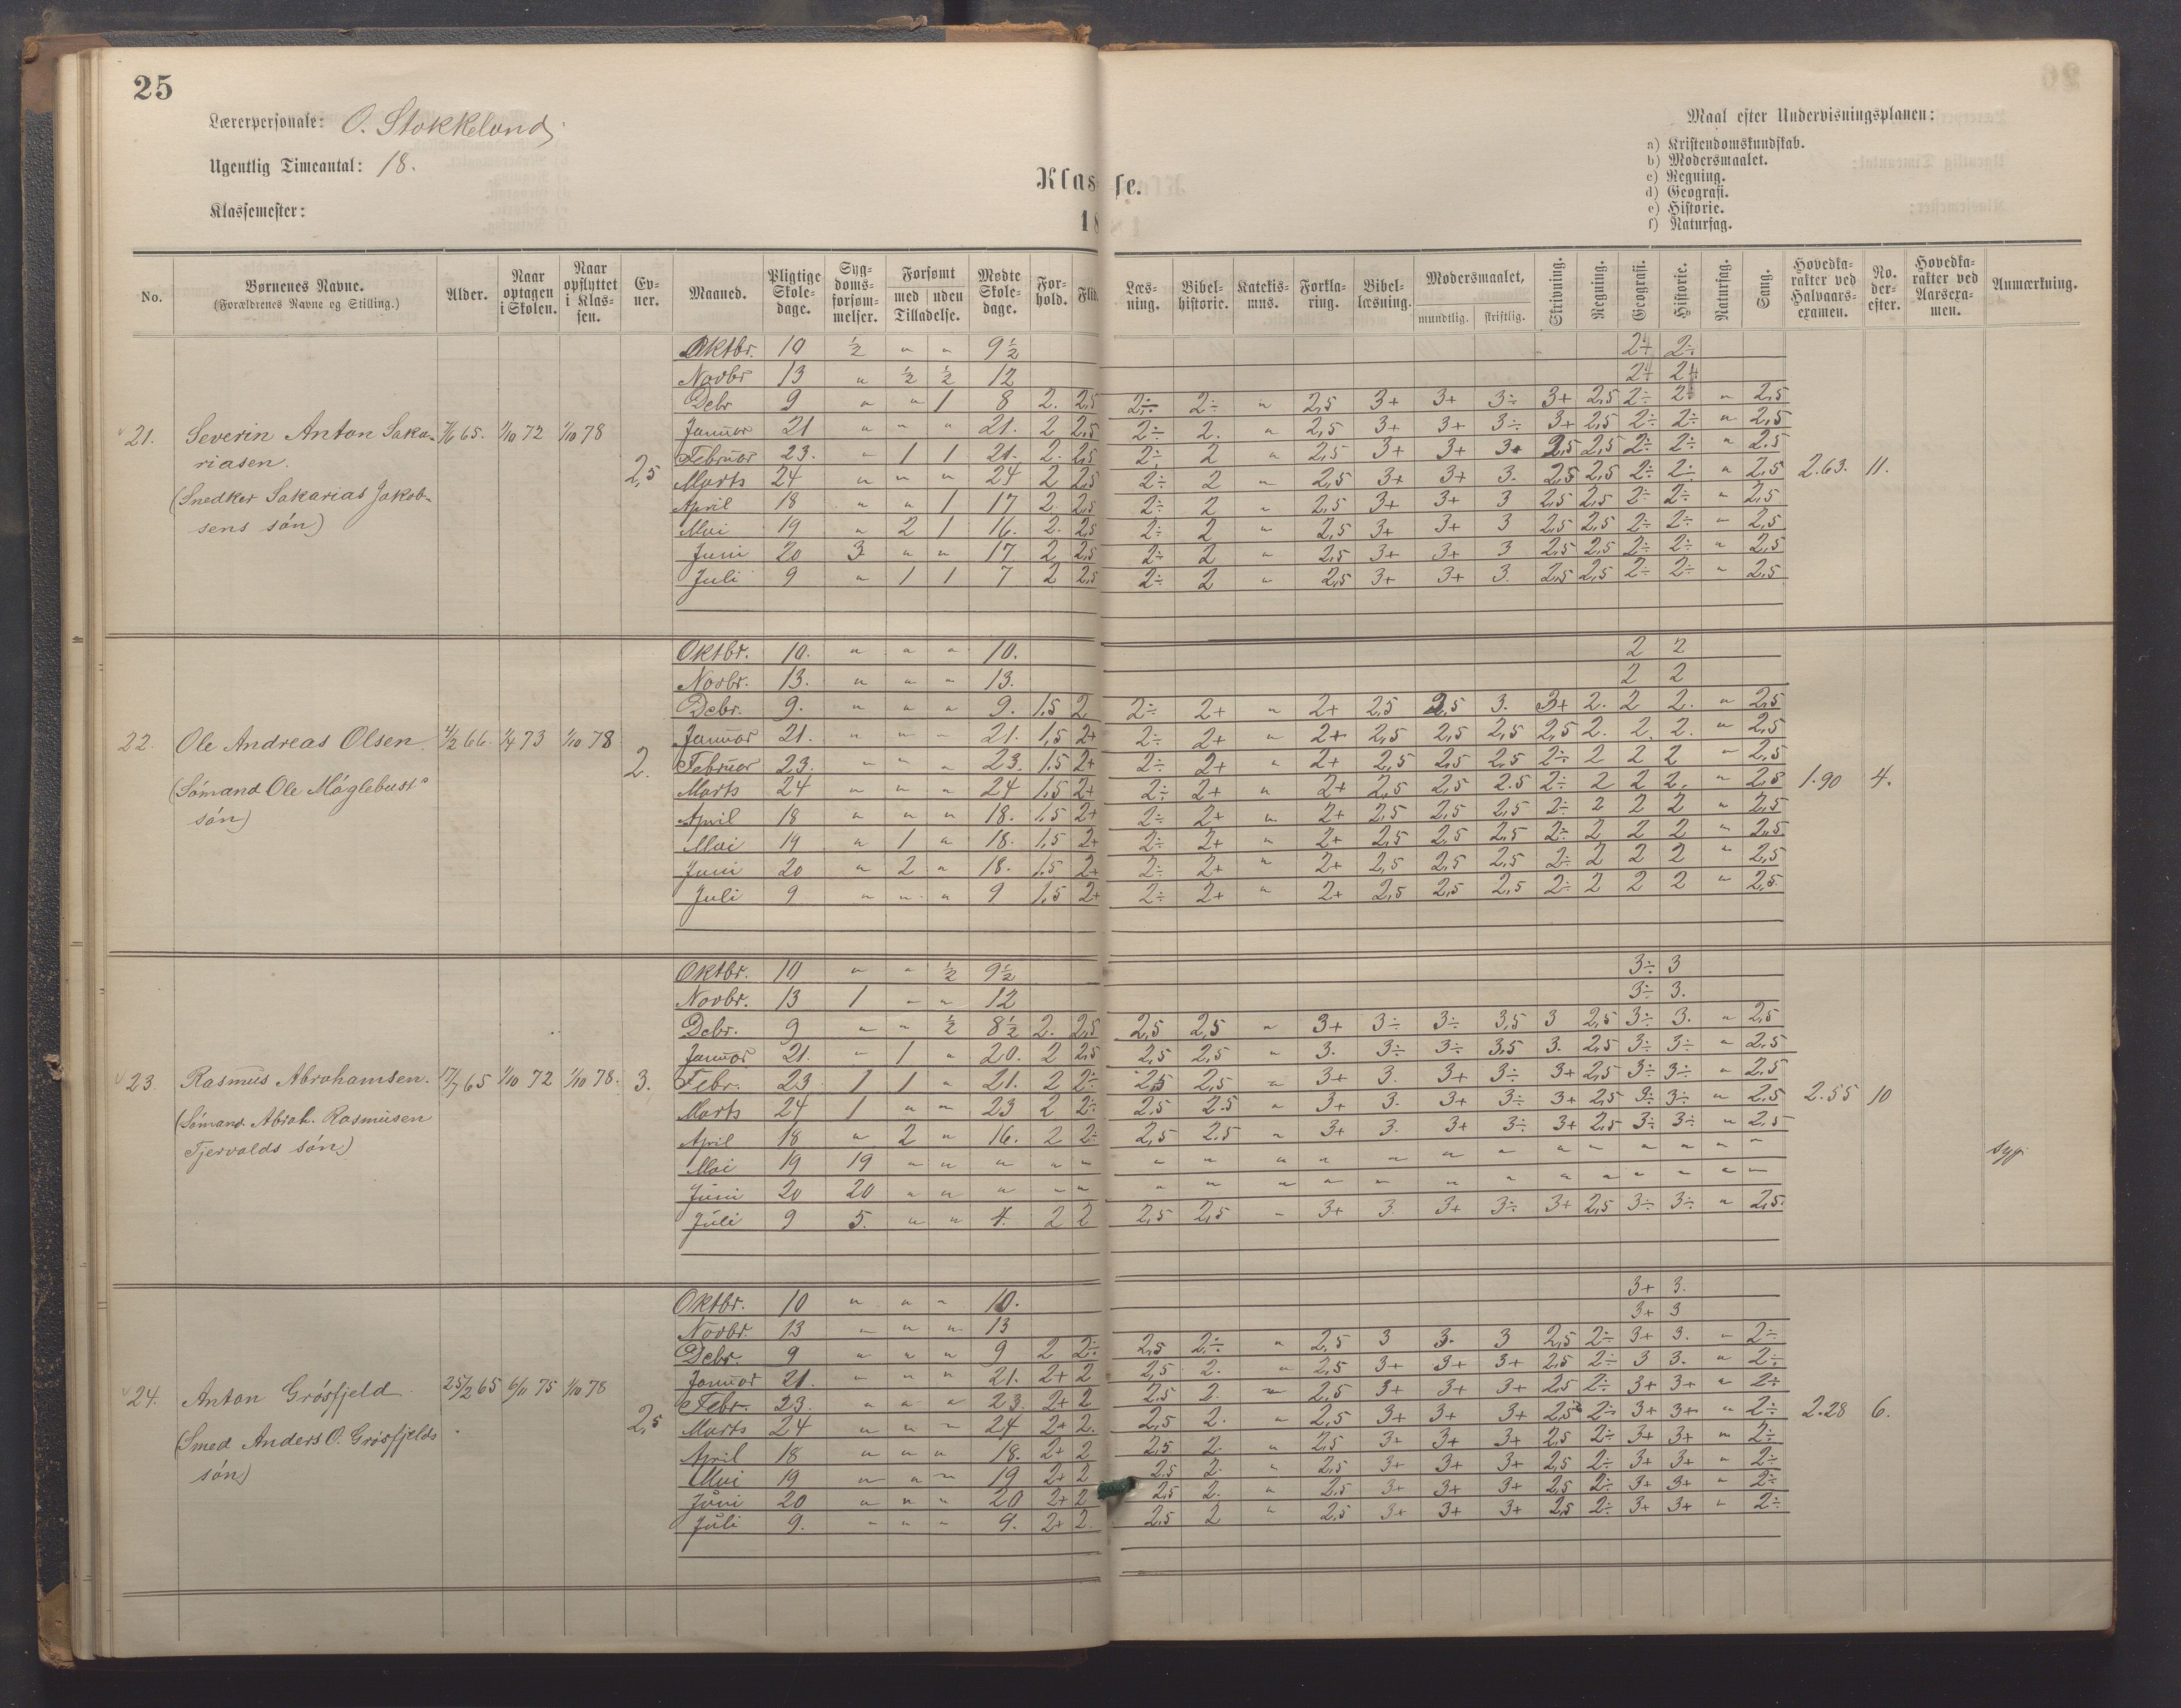 25
Lærerpersonale: O. Stokkeland
Ugentlig Timeantal: 18.
Klassemester:
Klasse.
18
Maal efter Undervisningsplanen:
a) Kristendomskundskab.
b) Modersmaalet.
c) Regning.
d) Geografi.
e) Historie.
f) Naturfag.
No. Børnenes Navne. (Forældrenes Navne og Stilling.) Alder. Naar optagen i Skolen. Naar opflyttet i Klassen. Evner. Maaned. Pligtige Skoledage. Sygdomsforsømmelser. Forsømt med uden Tilladelse. Mødte Skoledage. Forhold. Flid. Læsning. Bibelhistorie. Katekismus. Forklaring. Bibellæsning. Modersmaalet, mundtlig. skriftlig. Skrivning. Regning. Geografi. Historie. Naturfag. Sang. Hovedkarakter ved Halvaarsexamen. No. derefter. Hovedkarakter ved Aarsexamen. Anmærkning.
21. Severin Anton Sakariasen. (Snedker Sakarias Jakobsens søn) 1/10 72 1/10 78 2,5 2.63. 11.
Oktbr. 10 ½ " " 9½ 2+ 2÷
Novbr 13 " ½ ½ 12 2+ 2+
Debr 9 " " 1 8 2. 2,5 2÷ 2÷ " 2,5 3+ 3+ 3÷ 3+ 2,5 2÷ 2+ " 2,5
Januar 21 " " " 21. 2 2,5 2÷ 2. " 2,5 3+ 3+ 3÷ 3+ 2,5 2÷ 2÷ " 2,5
Februar 23. " 1 1 21. 2. 2,5 2÷ 2 " 2,5 3+ 3+ 3+ 2,5 2,5 2÷ 2÷ " 2.5
Marts 24 " " " 24 2 2,5 2÷ 2 " 2,5 3+ 3+ 3. 2,5 2,5 2÷ 2÷ " 2,5
April 18 " " 1 17 2. 2,5 2÷ 2 " 2,5 3+ 3+ 3 2,5 2,5 2÷ 2÷ " 2,5
Mai 19 " 2 1 16. 2. 2,5 2÷ 2 " 2,5 3+ 3+ 3 2,5 2,5 2÷ 2÷ " 2,5
Juni 20 3 " " 17 2 2,5 2÷ 2 " 2,5 3+ 3+ 3 2,5 2,5 2÷ 2÷ " 2,5
Juli 9 " 1 1 7 2 2,5 2÷ 2 " 2,5 3+ 3+ 3. 2,5 2,5 2÷ 2÷ " 2,5
22. Ole Andreas Olsen. (Sømand Ole Møglebust's søn) 1/4 73 1/10 78 2. 1.90 4.
Oktbr. 10. " " " 10. 2 2
Novbr. 13. " " " 13. 2 2
Debr. 9. " " " 9. 1,5 2 2÷ 2+ " 2+ 2,5 2,5 3. 3+ 2. 2 2. " 2,5
Januar 21. " " " 21. 1,5 2+ 2÷ 2+ " 2+ 2,5 2,5 2,5 2,5 2. 2. 2. " 2,5
Februar 23. " " " 23. 1.5 2+ 2÷ 2+ " 2+ 2,5 2,5 2,5 2÷ 2 2 2 " 2,5
Marts 24 " " " 24 1,5 2+ 2÷ 2+ " 2+ 2,5 2,5 2.5 2÷ 2 2 2. " 2,5
April 18 " " " 18. 1,5 2+ 2÷ 2+ " 2+ 2,5 2,5 2,5 2÷ 2 2 2 " 2,5
Mai 19 " 1 " 18. 1,5 2+ 2÷ 2+ " 2+ 2,5 2,5 2,5 2÷ 2 2 2 " 2,5
Juni 20 " 2 " 18. 1,5 2+ 2÷ 2+ " 2+ 2,5 2,5 2,5 2÷ 2 2 2 " 2,5
Juli 9 " " " 9 1,5 2+ 2÷ 2+ " 2+ 2,5 2,5 2,5 2÷ 2 2 2 " 2,5.
23. Rasmus Abrahamsen. (Sømand Abrah. Rasmusen Tjervolds søn) 17/7 65 1/10 72 1/10 78. 3. 2.55 10
Oktbr. 10 " " ½ 9½ 3÷ 3
Novbr. 13 1 " " 12 3÷ 3.
Debr. 9 " " ½ 8½ 2. 2,5 2,5 2,5 " 3+ 3÷ 3÷ 3,5 3 2,5 3÷ 3. " 2,5
Januar 21. " 1 " 20. 2 2,5 2,5 2,5 " 3. 3÷ 3÷ 3,5 3. 2,5 3÷ 3÷ " 2,5
Febr. 23 1 1 " 21. 2 2÷ 2,5 2,5 " 3+ 3. 3+ 3÷ 3+ 2,5 3÷ 3÷ " 2,5
Marts 24 1 " " 23 2 2÷ 2,5 2.5 " 3+ 3. 3+ 3÷ 3+ 2,5 3÷ 3÷ " 2,5
April 18 " 2 " 16. 2 2÷ 2,5 2.5 " 3+ 3. 3+ 3÷ 3+ 2,5 3÷ 3÷ " 2,5
Mai 19 19 " " " " " " " " " " " " " " " " " " syg
Juni 20 20 " " " " " " " " " " " " " " " " " "
Juli 9 5. " " 4. 2 2 2,5 2,5 " 3+ 3. 3+ 3÷ 3+ 2,5 3÷ 3÷ " 2,5.
24. Anton Grøsfjeld (Smed Anders O. Grøsfjelds søn) 25/2 65 6/11 75 1/10 78 2,5 2.28 6.
Oktbr. 10 " " " 10. 3+ 3.
Novbr. 13 " " " 13 3+ 3
Debr. 9 " " " 9 2 2÷ 2,5 2÷ " 2,5 3 3. 3 2,5 2÷ 3+ 3. " 2÷
Januar 21. " " " 21. 2+ 2 2,5 2. " 2,5 3+ 3+ 3+ 2,5 2÷ 3 3. " 2÷
Febr. 23. " " " 23. 2+ 2 2,5 2. " 2,5 3+ 3+ 3+ 2,5 2÷ 3+ 3+ " 2÷
Marts 24 " " " 24 2+ 2. 2,5 2. " 2,5 3+ 3+ 3+ 2,5 2÷ 3+ 3+ " 2÷
April 18 " " " 18. 2+ 2 2,5. 2. " 2,5 3+ 3+ 3+ 2,5 2÷ 3+ 3+ " 2÷
Mai 19 " " " 19 2+ 2 2,5 2. " 2,5 3+ 3+ 3+ 2,5 2÷ 3+ 3+ " 2÷
Juni 20 " " " 20 2+ 2 2,5 2. " 2,5 3+ 3+ 3+ 2,5 2÷ 3+ 3+ " 2÷
Juli 9. " " " 9. 2+ 2. 2,5 2 " 2,5 3+ 3+ 3+ 2,5 2÷ 3+ 3+ " 2÷